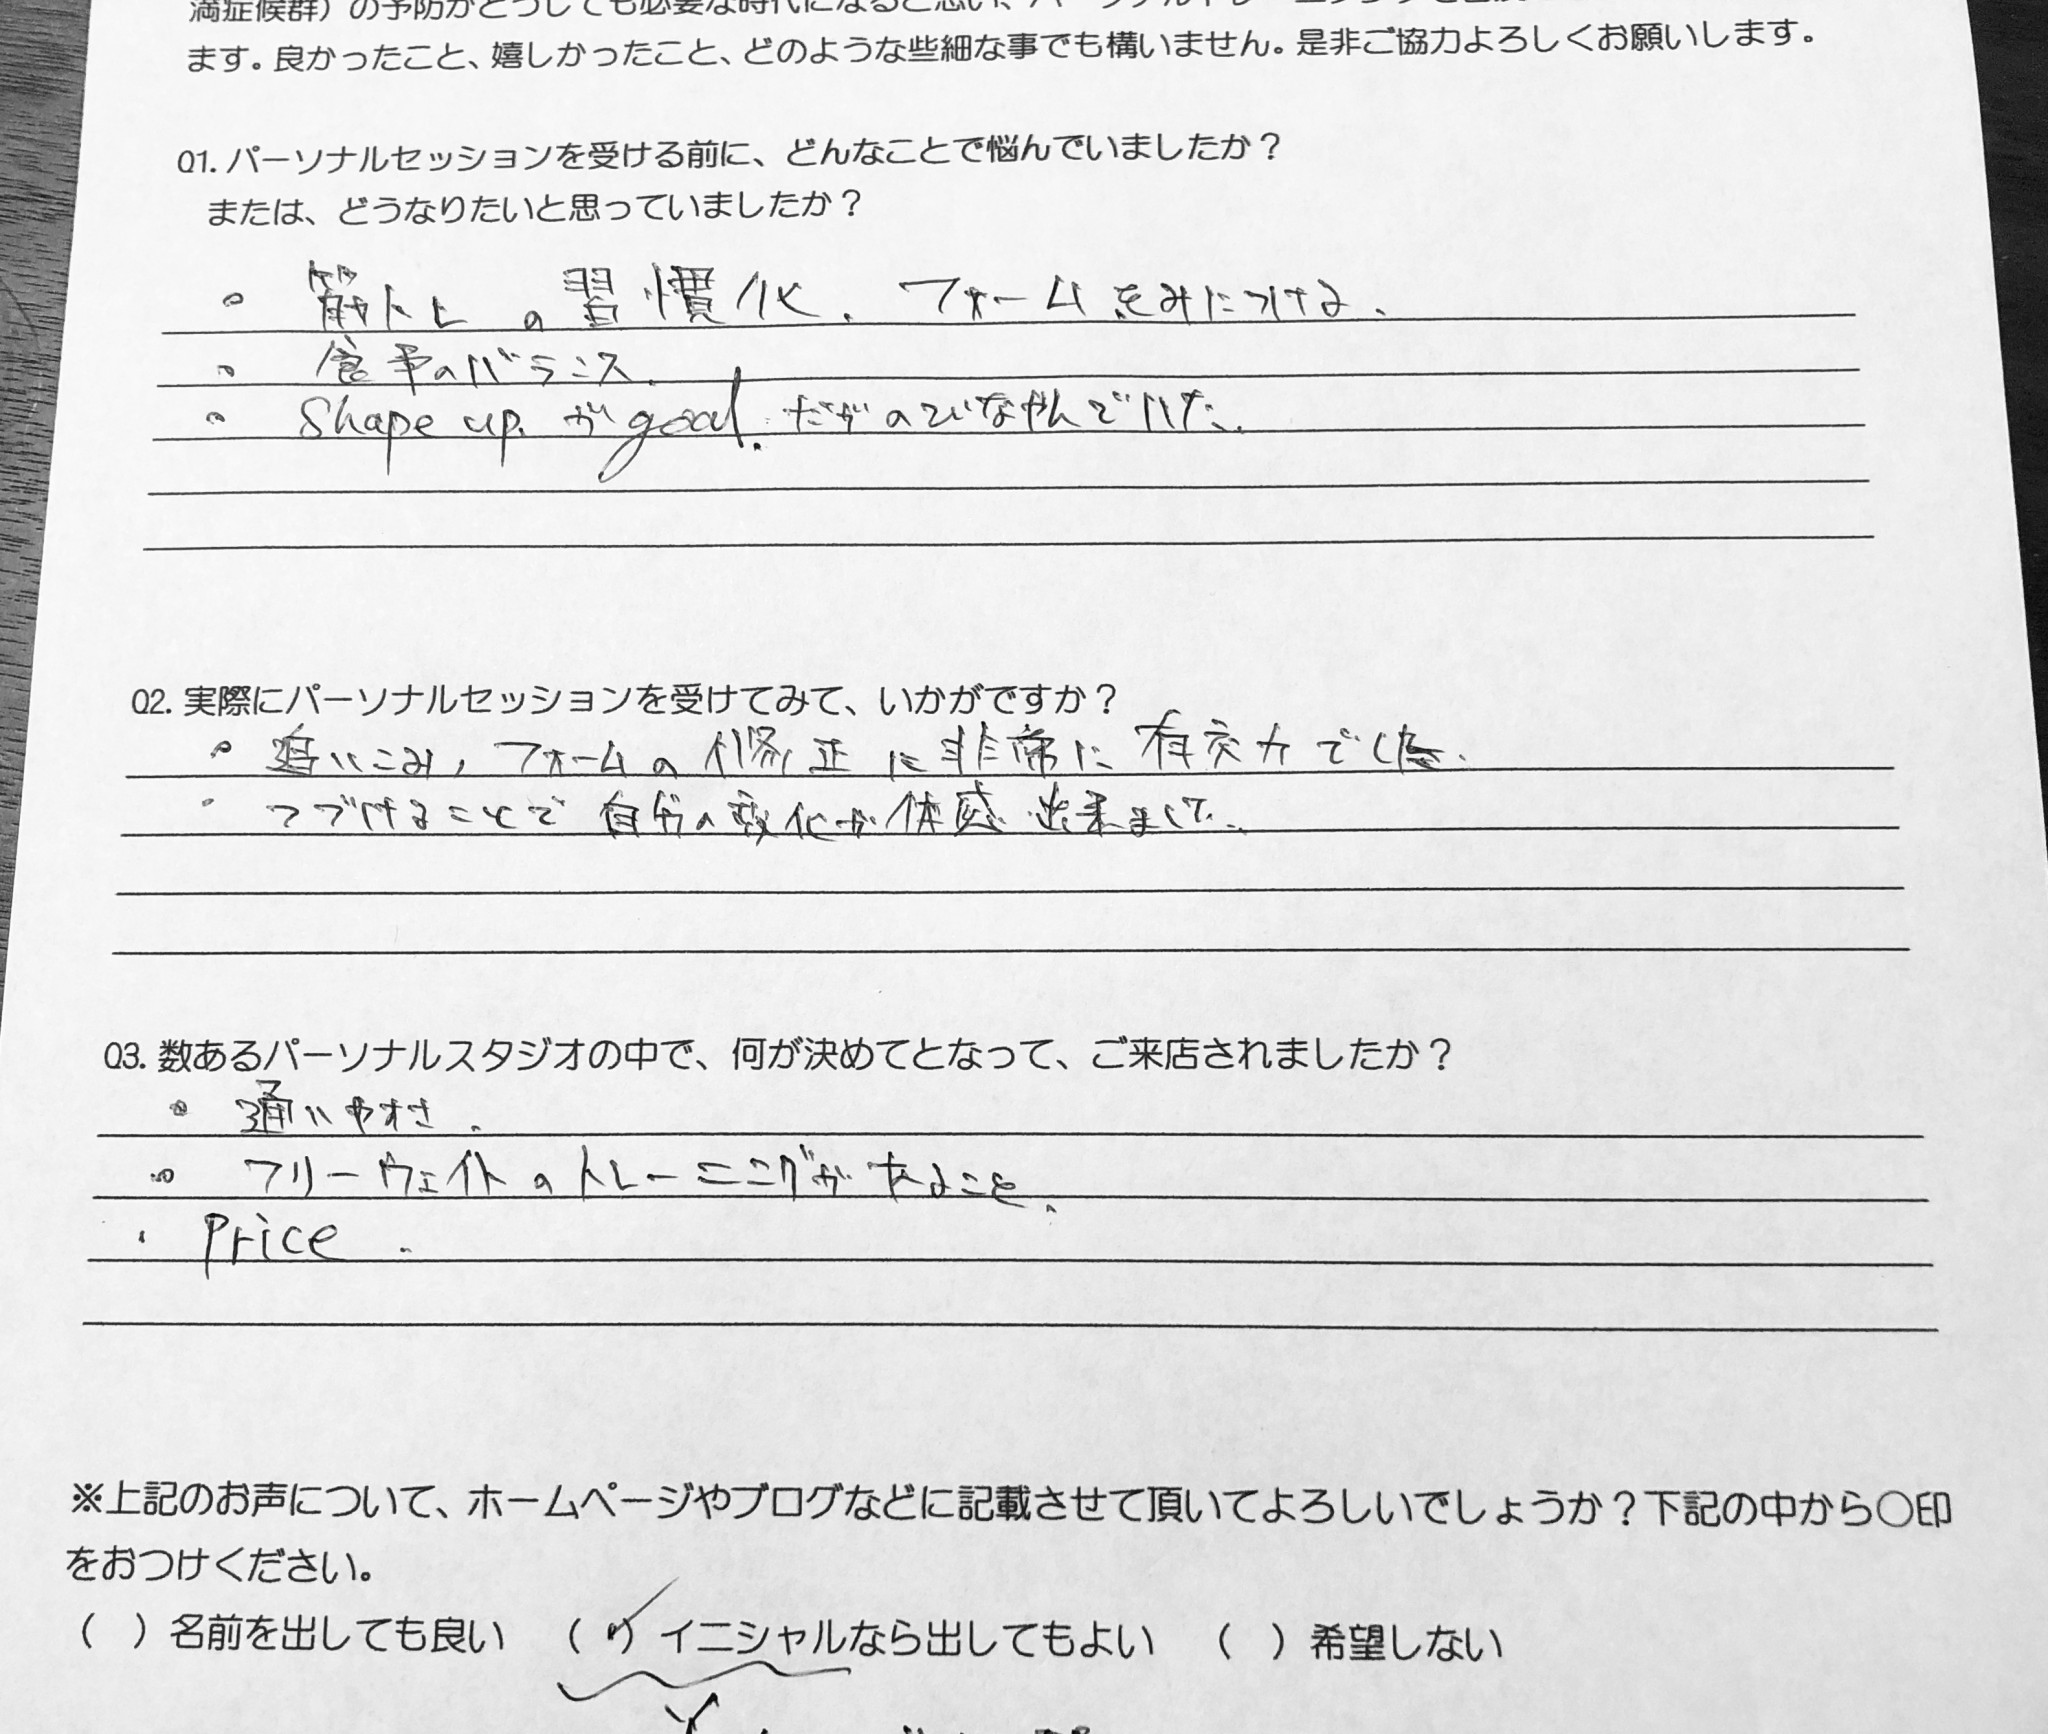 満症候群）の予防がどうしても必要な時代になると思い、パーソナルトレーニング
ます。良かったこと、嬉しかったこと、どのような些細な事でも構いません。是非ご協力よろしくお願いします。
Q1. パーソナルセッションを受ける前に、どんなことで悩んでいましたか？
または、どうなりたいと思っていましたか？
・筋トレの習慣化．フォームをみにつける．
・食事のバランス．
・Shape up. が goal. だがのびなやんでいた．
Q2. 実際にパーソナルセッションを受けてみて、いかがですか？
・追いこみ，フォームの修正に非常に有効でした．
・つづけることで自分の変化が体感出来ました．
Q3. 数あるパーソナルスタジオの中で、何が決めてとなって、ご来店されましたか？
・通いやすさ．
・フリーウェイトのトレーニングができること．
・Price．
※上記のお声について、ホームページやブログなどに記載させて頂いてよろしいでしょうか？下記の中から〇印
をおつけください。
（　）名前を出しても良い　（✓）イニシャルなら出してもよい　（　）希望しない